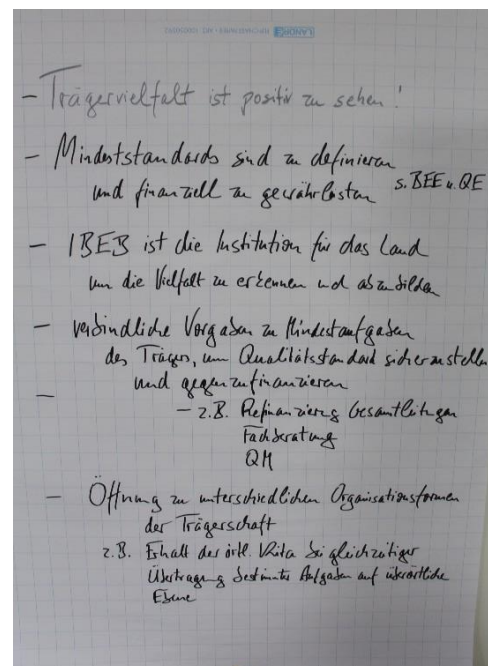 LANDRÉ
- Trägervielfalt ist positiv zu sehen!
- Mindeststandards sind zu definieren
und finanziell zu gewährleisten s. BEE u. QE
- IBEB ist die Institution für das Land
um die Vielfalt zu erkennen und abzubilden
- verbindliche Vorgaben zu Mindestaufgaben
des Trägers, um Qualitätsstandard sicherzustellen
und gegenzufinanzieren
-
- z.B. Refinanzierung Gesamtleitungen
Fachberatung
QM
- Öffnung zu unterschiedlichen Organisationsformen
der Trägerschaft
z.B. Erhalt der örtl. Kita bei gleichzeitiger
Übertragung bestimmter Aufgaben auf überörtliche
Ebene